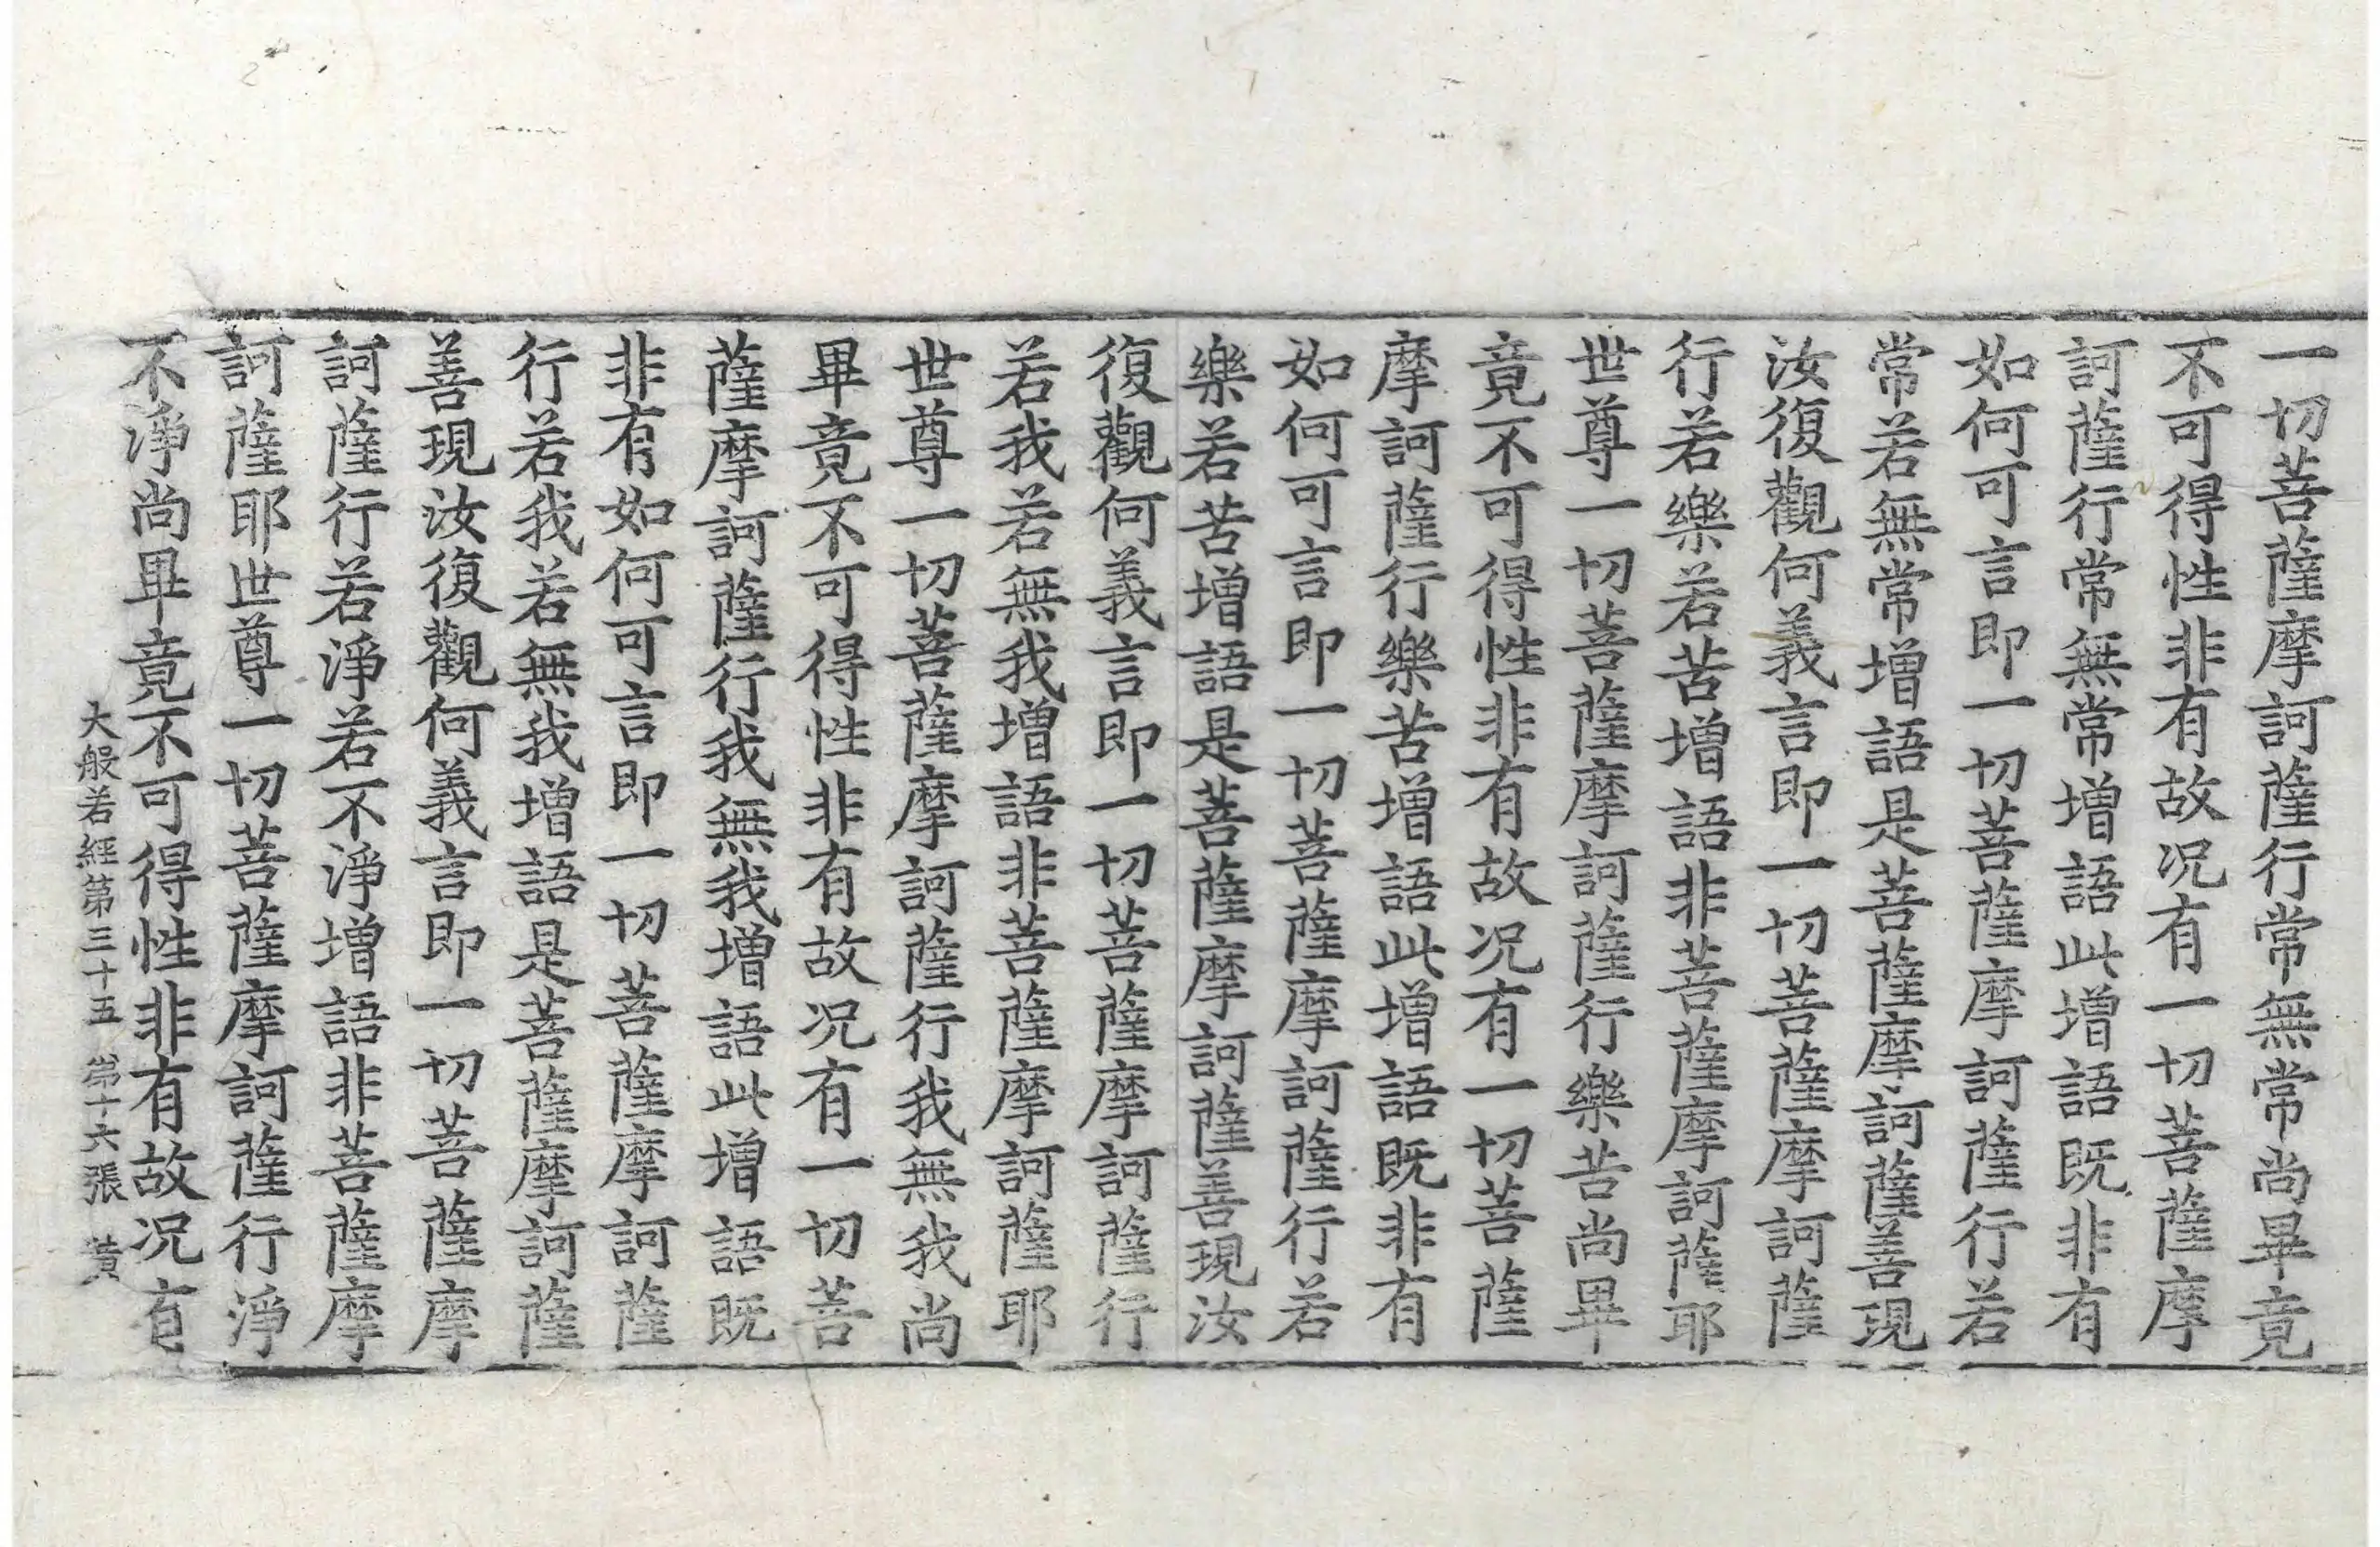 一切菩薩摩訶薩行常無常尚畢竟
不可得性非有故况有一切菩薩摩
訶薩行常無常增語此增語既非有
如何可言即一切菩薩摩訶薩行若
常若無常增語是菩薩摩訶薩善現
汝復觀何義言即一切菩薩摩訶薩
行若樂若苦增語非菩薩摩訶薩耶
世尊一切菩薩摩訶薩行樂苦尚畢
竟不可得性非有故况有一切菩薩
摩訶薩行樂苦增語此增語既非有
如何可言即一切菩薩摩訶薩行若
樂若苦增語是菩薩摩訶薩善現汝
復觀何義言即一切菩薩摩訶薩行
若我若無我增語非菩薩摩訶薩耶
世尊一切菩薩摩訶薩行我無我尚
畢竟不可得性非有故况有一切菩
薩摩訶薩行我無我增語此增語既
非有如何可言即一切菩薩摩訶薩
行若我若無我增語是菩薩摩訶薩
善現汝復觀何義言即一切菩薩摩
訶薩行若淨若不淨增語非菩薩摩
訶薩耶世尊一切菩薩摩訶薩行淨
不淨尚畢竟不可得性非有故况有
大般若經第三十五 第十六張 黃